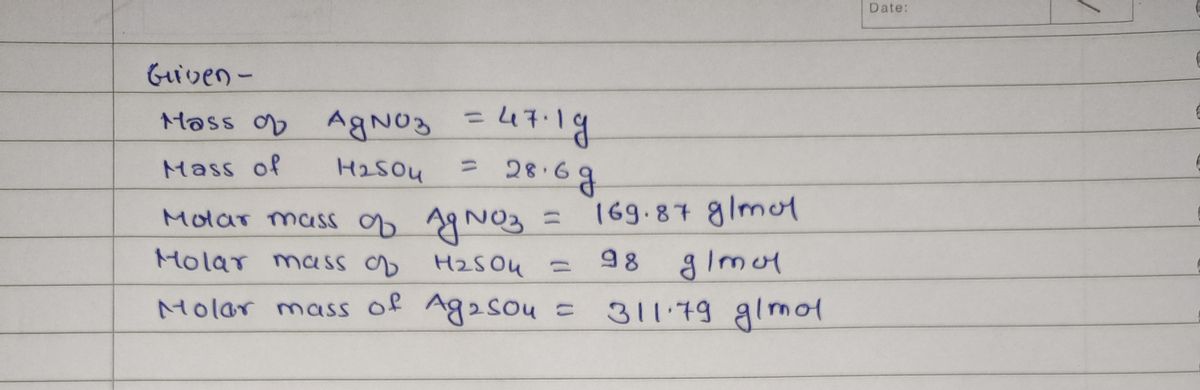 Date:
Given-
Mass of AgNO3 = 47.1g
Mass of H2SO4 = 28.6g
Molar mass of AgNO3 = 169.87 g/mol
Molar mass of H2SO4 = 98 g/mol
Molar mass of Ag2SO4 = 311.79 g/mol